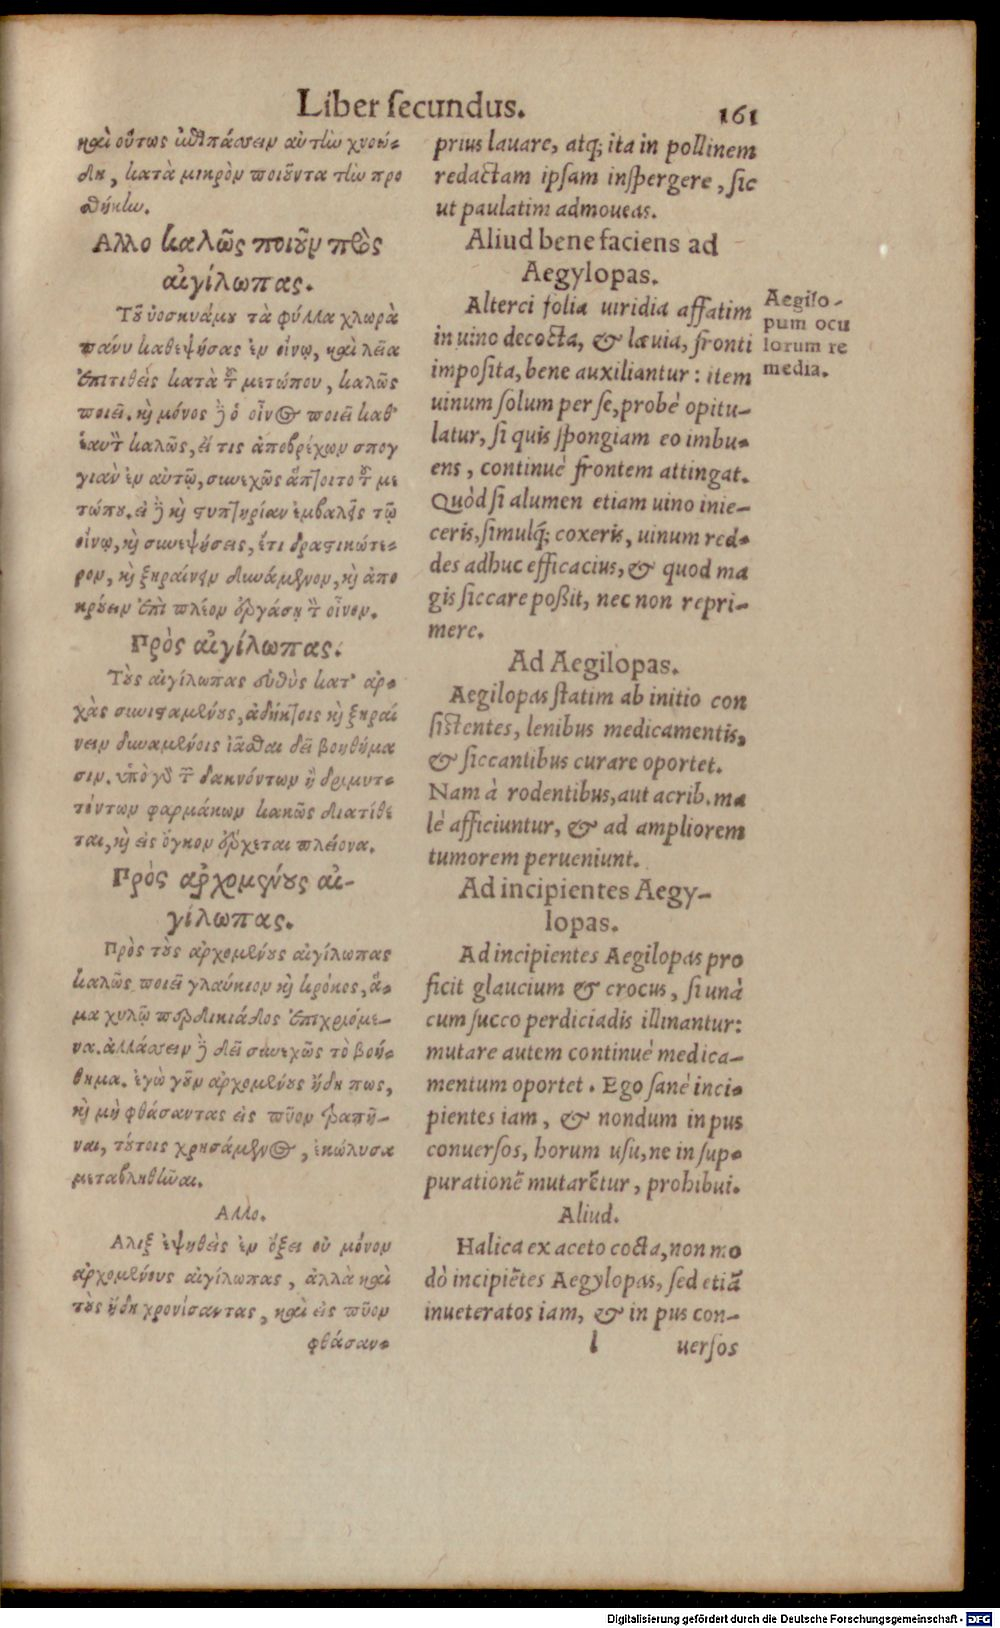 Liber secundus. 161
καὶ οὕτως ἐπιπάσσειν αὐτὴν χνοώ-
δη, κατὰ μικρὸν ποιοῦντα τὴν προ
σθήκην.
Αλλο καλῶς ποιοῦν πρὸς
αἰγίλωπας.
Τοῦ ὑοσκυάμου τὰ φύλλα χλωρὰ
πάνυ καθεψήσας ἐν οἴνῳ, καὶ λεῖα
ἐπιτιθεὶς κατὰ τοῦ μετώπου, καλῶς
ποιεῖ. καὶ μόνος δὲ ὁ οἶνος ποιεῖ καθ'
ἑαυτὸν καλῶς, εἴ τις ἀποβρέχων σπογ
γιὰν ἐν αὐτῷ, συνεχῶς ἅπτοιτο τοῦ με
τώπου. εἰ δὲ καὶ στυπτηρίαν ἐμβαλεῖς τῷ
οἴνῳ, καὶ συνεψήσεις, ἔτι δραστικώτε-
ρον, καὶ ξηραίνειν δυνάμενον, καὶ ἀπο
κρούειν ἐπὶ πλέον ἐργάσῃ τὸν οἶνον.
Πρὸς αἰγίλωπας.
Τοὺς αἰγίλωπας εὐθὺς κατ' ἀρ-
χὰς συνισταμένους, ἀδήκτοις καὶ ξηραί
νειν δυναμένοις ἰᾶσθαι δεῖ βοηθήμα
σιν. ὑπὸ γὰρ τῶν δακνόντων ἢ δριμυτ-
τόντων φαρμάκων κακῶς διατίθε
ται, καὶ εἰς ὄγκον ἔρχεται πλείονα.
Πρὸς ἀρχομένους αἰ-
γίλωπας.
Πρὸς τοὺς ἀρχομένους αἰγίλωπας
καλῶς ποιεῖ γλαύκιον καὶ κρόκος, ἅ-
μα χυλῷ περδικιάδος ἐπιχριόμε-
να. ἀλλάσσειν δὲ δεῖ συνεχῶς τὸ βοή-
θημα. ἐγὼ γοῦν ἀρχομένους ἤδη πως,
καὶ μὴ φθάσαντας εἰς πῦον τραπῆ-
ναι, τούτοις χρησάμενος, ἐκώλυσα
μεταβληθῆναι.
Αλλο.
Αλιξ ἑψηθεὶς ἐν ὄξει οὐ μόνον
ἀρχομένους αἰγίλωπας, ἀλλὰ καὶ
τοὺς ἤδη χρονίσαντας, καὶ εἰς πῦον
φθάσαν-
prius lauare, atq; ita in pollinem
redactam ipsam inspergere, sic
ut paulatim admoueas.
Aliud bene faciens ad
Aegylopas.
Alterci folia uiridia affatim
in uino decocta, & læuia, fronti
imposita, bene auxiliantur: item
uinum solum per se, probè opitu-
latur, si quis spongiam eo imbu-
ens, continuè frontem attingat.
Quòd si alumen etiam uino inie-
ceris, simulq́; coxeris, uinum red-
des adhuc efficacius, & quod ma
gis siccare poßit, nec non repri-
mere.
Ad Aegilopas.
Aegilopas statim ab initio con
sistentes, lenibus medicamentis,
& siccantibus curare oportet.
Nam à rodentibus, aut acrib. ma
lè afficiuntur, & ad ampliorem
tumorem perueniunt.
Ad incipientes Aegy-
lopas.
Ad incipientes Aegilopas pro
ficit glaucium & crocus, si unà
cum succo perdiciadis illinantur:
mutare autem continuè medica-
mentum oportet. Ego sanè inci-
pientes iam, & nondum in pus
conuersos, horum usu, ne in sup-
purationē mutarētur, prohibui.
Aliud.
Halica ex aceto cocta, non mo
dò incipiētes Aegylopas, sed etiā
inueteratos iam, & in pus con-
l uersos
Aegilo-
pum ocu
lorum re
media.
Digitalisierung gefördert durch die Deutsche Forschungsgemeinschaft - DFG